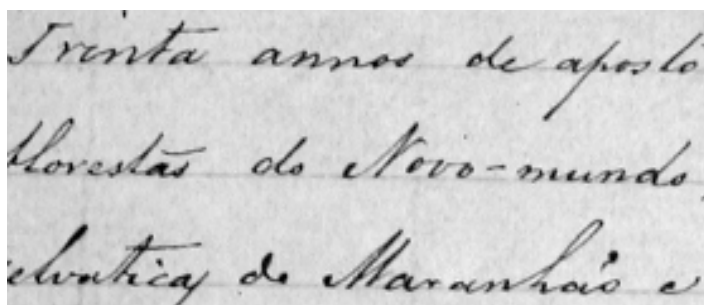 Trinta annos de aposto
florestas do Novo-mundo,
elvatica de Maranhão e